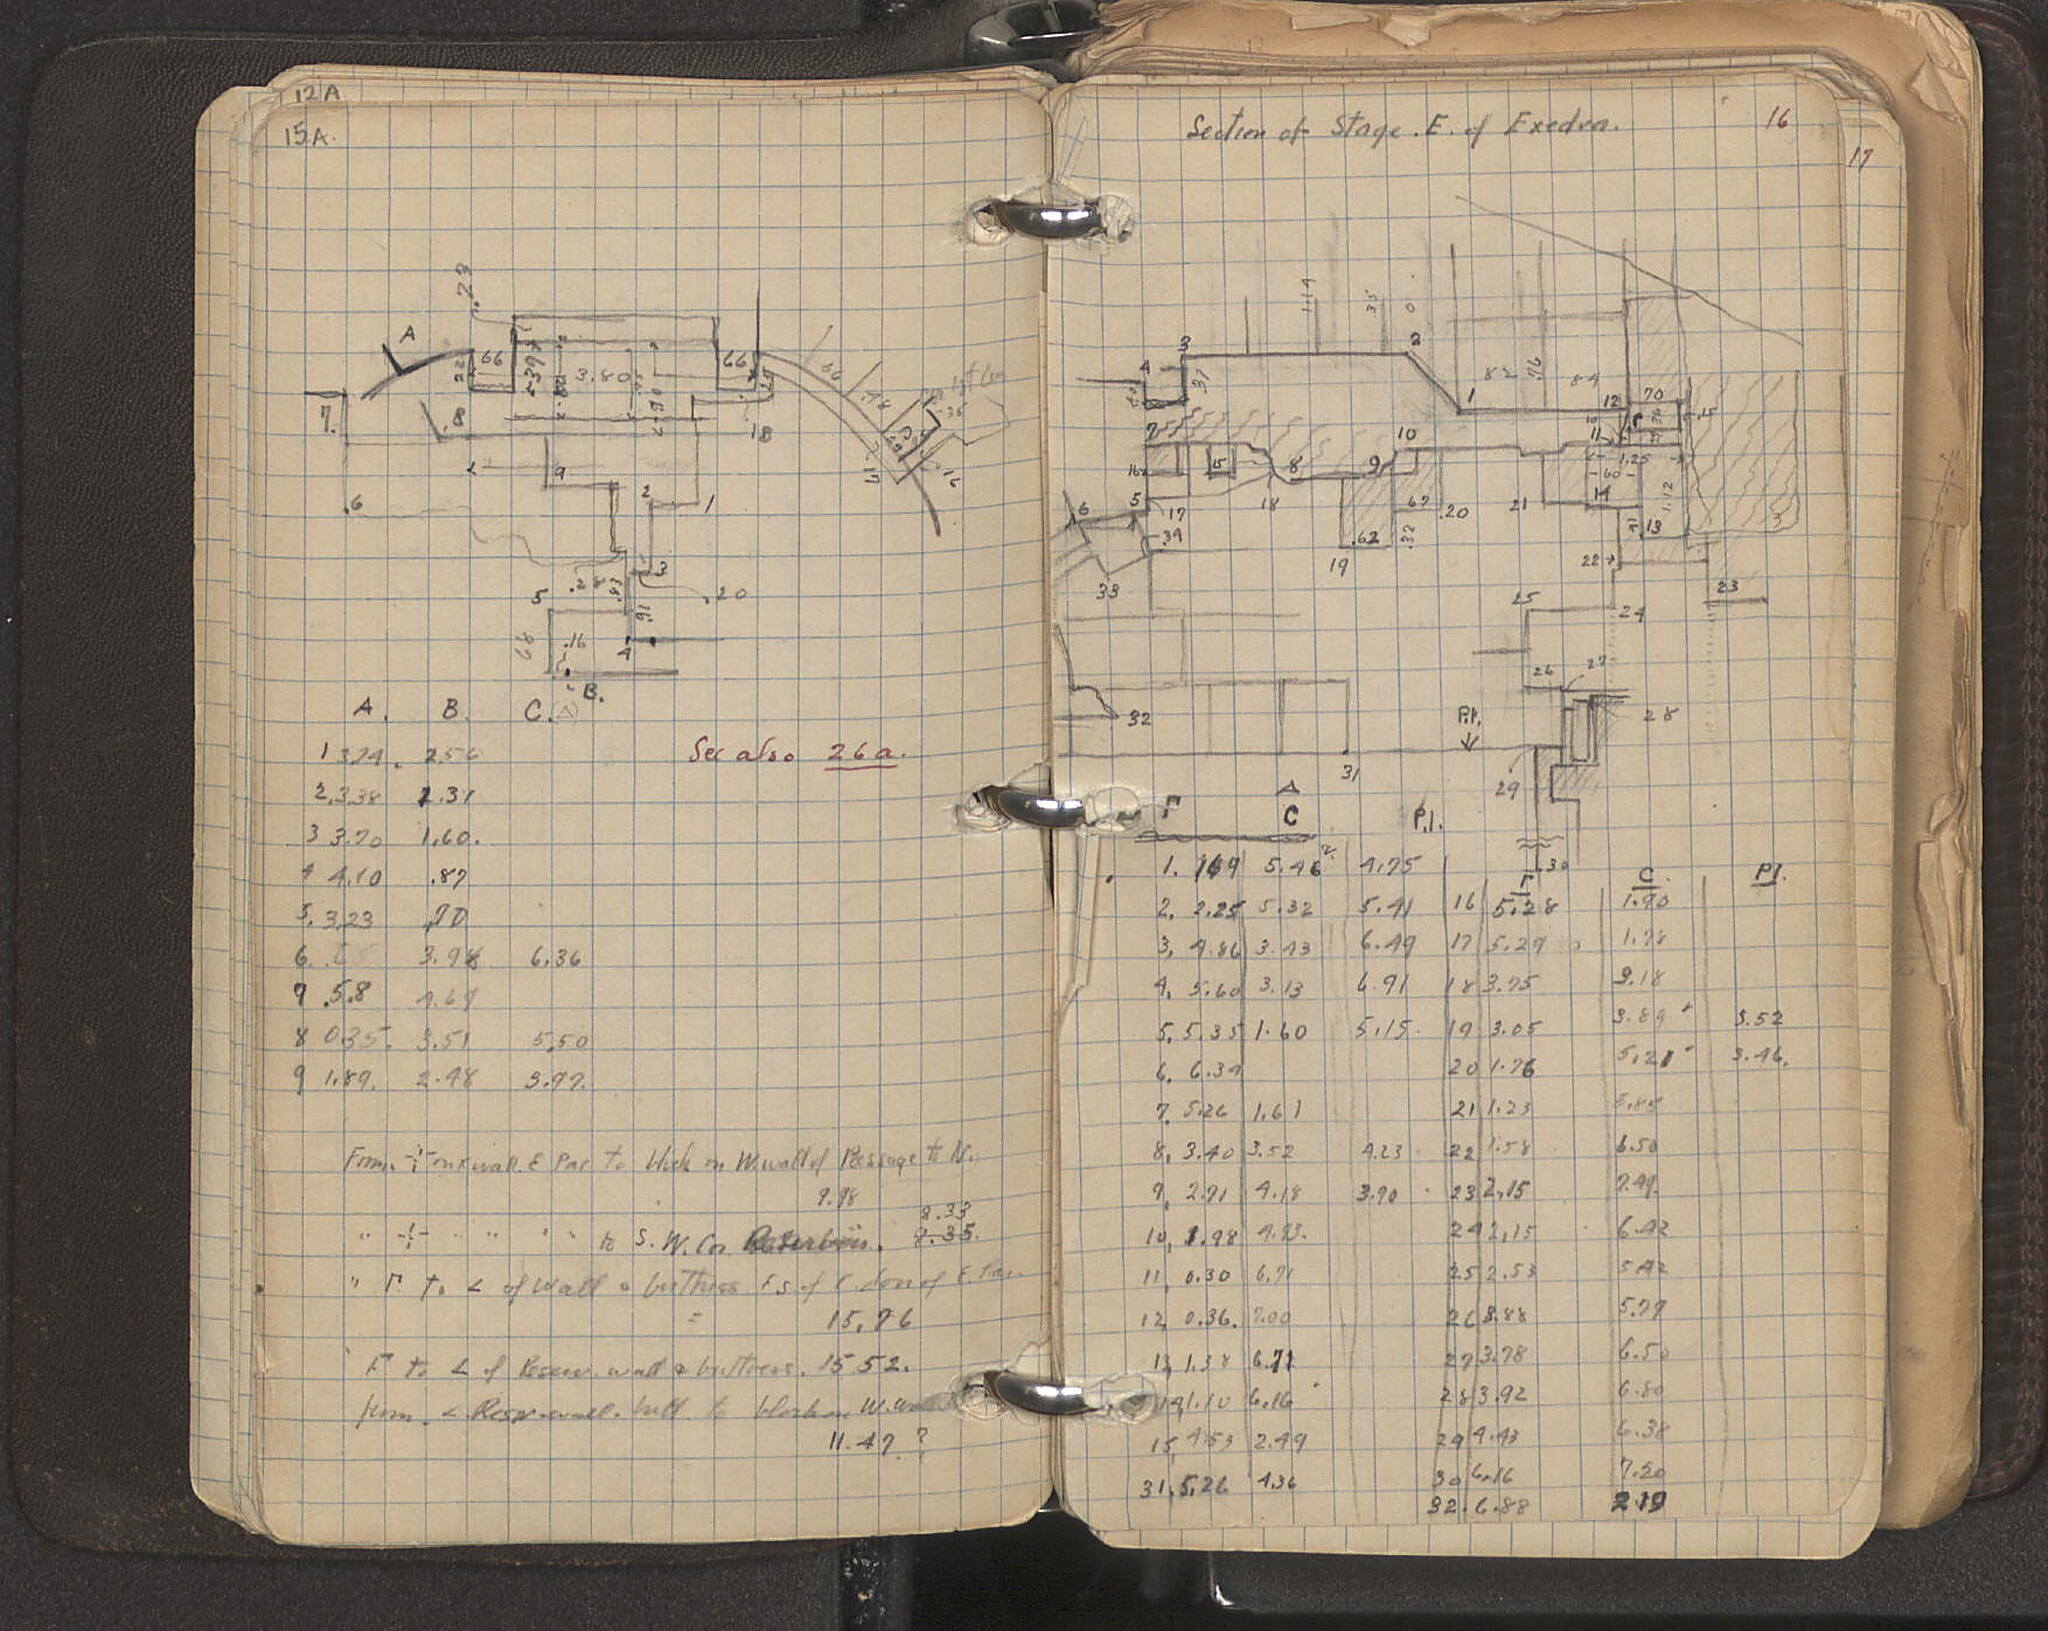 12A
15A.
.23
A
66
.397
3.80
66
7.
.8
1B
.16
9
2
1
6
3
.28
.83
.20
5
.91
68
.16
4
B.
A. B. C.
See also 26a.
1 3.74. 2.56
2. 3.38 2.31
3 3.70 1.60.
4 4.10 .87
5. 3.23 .70
6. 3.98 6.36
7 .58 4.69
8 0.35. 3.51 5.50
9 1.89. 2.48 3.97.
From -¦- on x wall. E Par to block on W. wall of Passage to N.
9.98
8.33
" -¦- " " " " to S. W. Cor 8.35.
" Γ to < of wall & buttress E.S. of E. door of E. Par.
= 15.76
Γ to < of Reserv. wall & buttress. 15.52.
from < Resr. wall. butt. to block on W.
11.47 ?
Section of Stage. E. of Exedra.
16
17
1.19
.35
0
3
2
4
.37
82
.76
84
1
12
70
.15
7
10
11
1.25
60
16
15
8
9
14
1.12
5
17
18
67
.20
21
13
6
.39
.62
.32
22
19
33
23
25
24
26
27
32
P.I.
28
31
29
.30
Γ Δ C P.I.
1. 169 5.46 4.75
Γ C. P.I.
2. 2.25 5.32 5.41 16 5.28 1.90
3. 4.86 3.43 6.49 17 5.29 1.78
4. 5.60 3.13 6.91 18 3.75 3.18
5. 5.35 1.60 5.15. 19 3.05 3.89 3.52
6. 6.34 20 1.76 5.21 3.46.
7. 5.26 1.61 21 1.23 5.85
8. 3.40 3.52 4.23 22 1.58 6.50
9. 2.71 4.18 3.90 23 2.15 7.49.
10. 1.98 4.93. 24 2.15 6.42
11. 0.30 6.71 25 2.53 5.42
12. 0.36. 7.00 26 3.88 5.77
13. 1.38 6.71 27 3.78 6.50
14. 1.10 6.16 28 3.92 6.80
15. 4.53 2.49 29 4.43 6.38
31. 5.26 4.36 30 6.16 7.50
32. 6.88 2.19